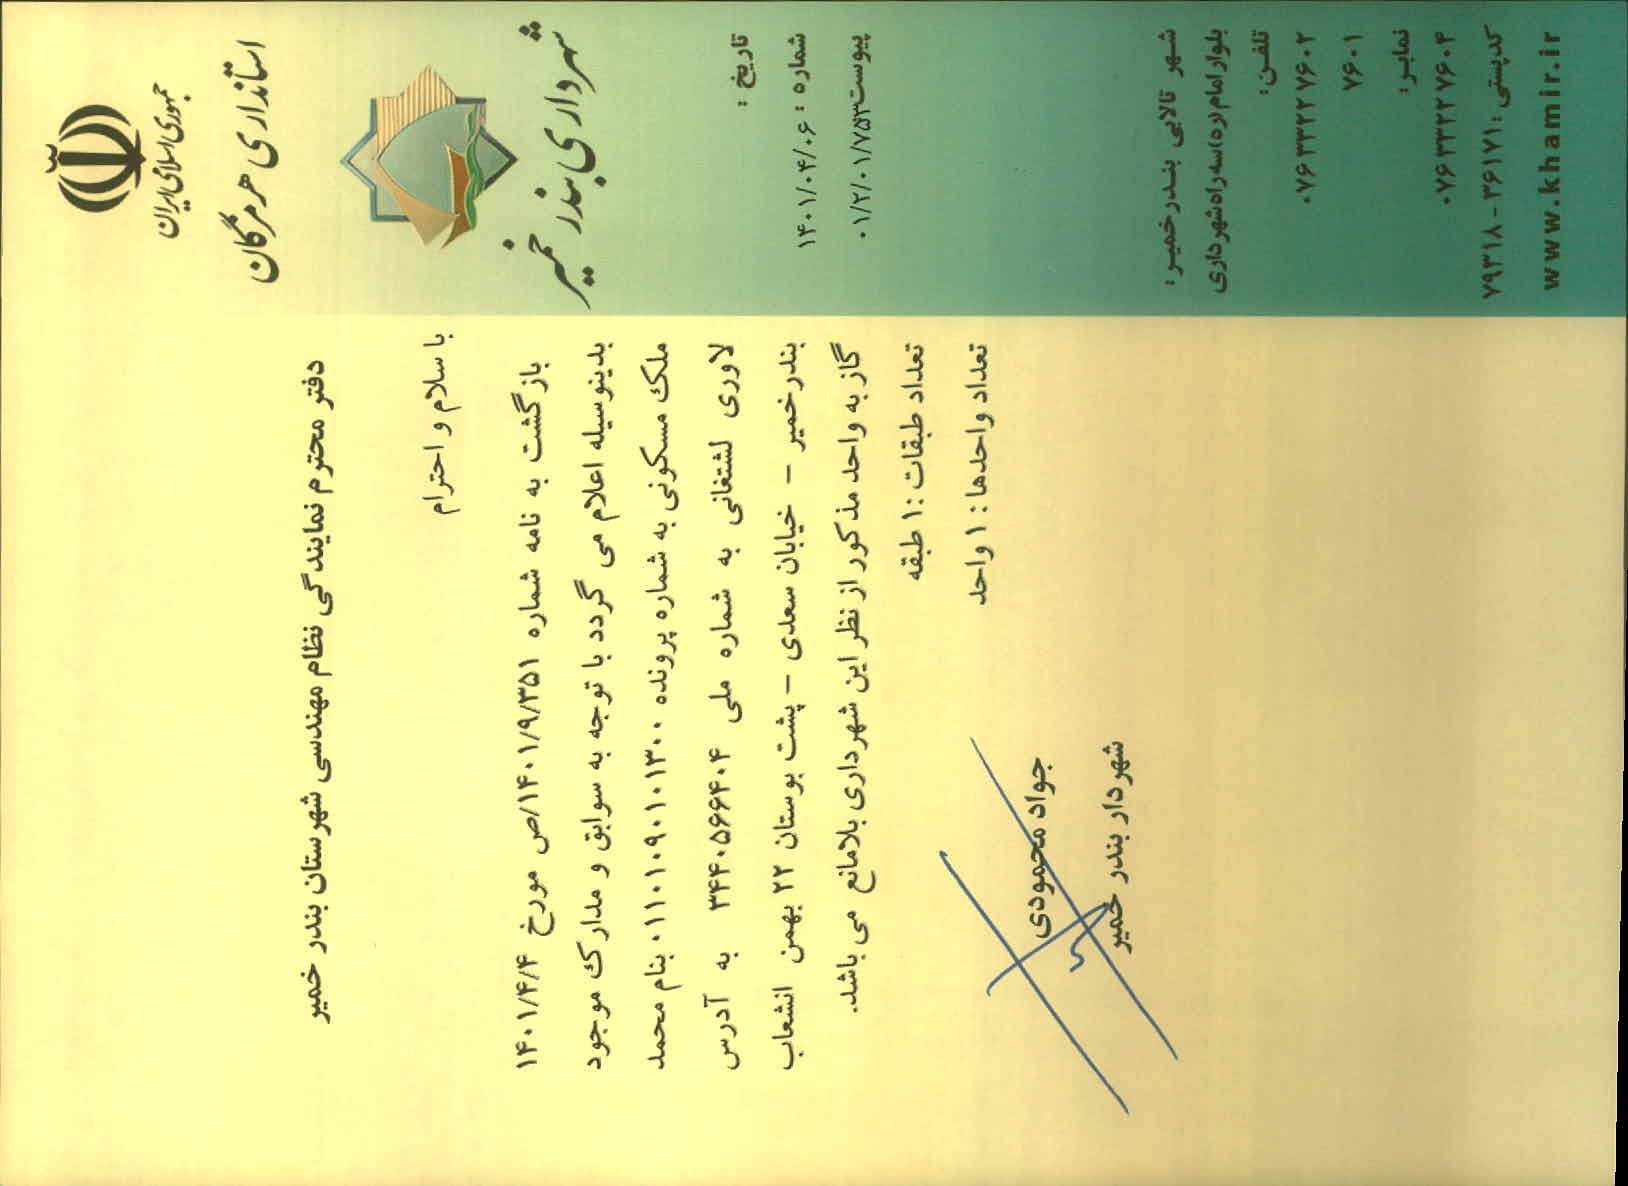 جمهوری اسلامی ایران
استانداری هرمزگان
شهرداری بندر خمیر
تاریخ :
شماره : ۱۴۰۱/۰۴/۰۶
پیوست ۰۱/۲/۰۱/۷۵۳
دفتر محترم نمایندگی نظام مهندسی شهرستان بندر خمیر
با سلام و احترام
بازگشت به نامه شماره ۱۴۰۱/۹/۳۵۱/ص مورخ ۱۴۰۱/۴/۴
بدینوسیله اعلام می گردد با توجه به سوابق و مدارک موجود
ملک مسکونی به شماره پرونده ۰۱۱۰۱۰۹۰۱۰۱۳۰۰ بنام محمد
لاوری لشتغانی به شماره ملی ۳۴۴۰۵۶۶۴۰۴ به آدرس
بندرخمیر - خیابان سعدی - پشت بوستان ۲۲ بهمن انشعاب
گاز به واحد مذکور از نظر این شهرداری بلامانع می باشد.
تعداد طبقات : ۱ طبقه
تعداد واحدها : ۱ واحد
جواد محمودی
شهردار بندر خمیر
شهر تالابی بندرخمیر :
بلوار امام (ره) سه راه شهرداری
تلفن :
۰۷۶۳۳۲۲۷۶۰۲
۷۶۰۱
نمابر :
۰۷۶۳۳۲۲۷۶۰۴
کدپستی : ۳۶۱۷۱ - ۷۹۳۱۸
www.khamir.ir